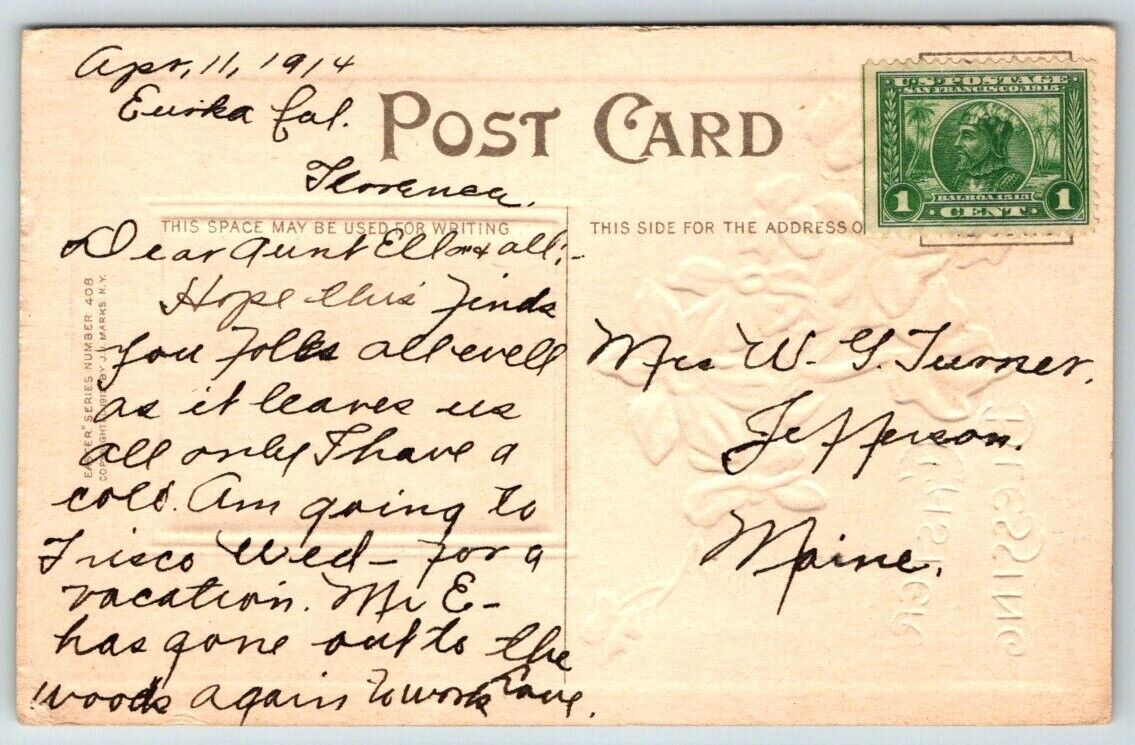 Apr, 11, 1914
Eurka Cal.
Florence.
POST CARD
THIS SPACE MAY BE USED FOR WRITING
THIS SIDE FOR THE ADDRESS O
U.S. POSTAGE
SAN FRANCISCO, 1915
BALBOA 1513
1 CENT 1
Dear Aunt Ell & all:-
Hope this finds
you folks all well
as it leaves us
all only I have a
cold. Am going to
Frisco Wed- for a
vacation. Mr E-
has gone out to the
woods again to work
Love.
Mrs W. G. Turner.
Jefferson.
Maine.
EASTER" SERIES NUMBER 408
BY J. MARKS N.Y.
BLESSING